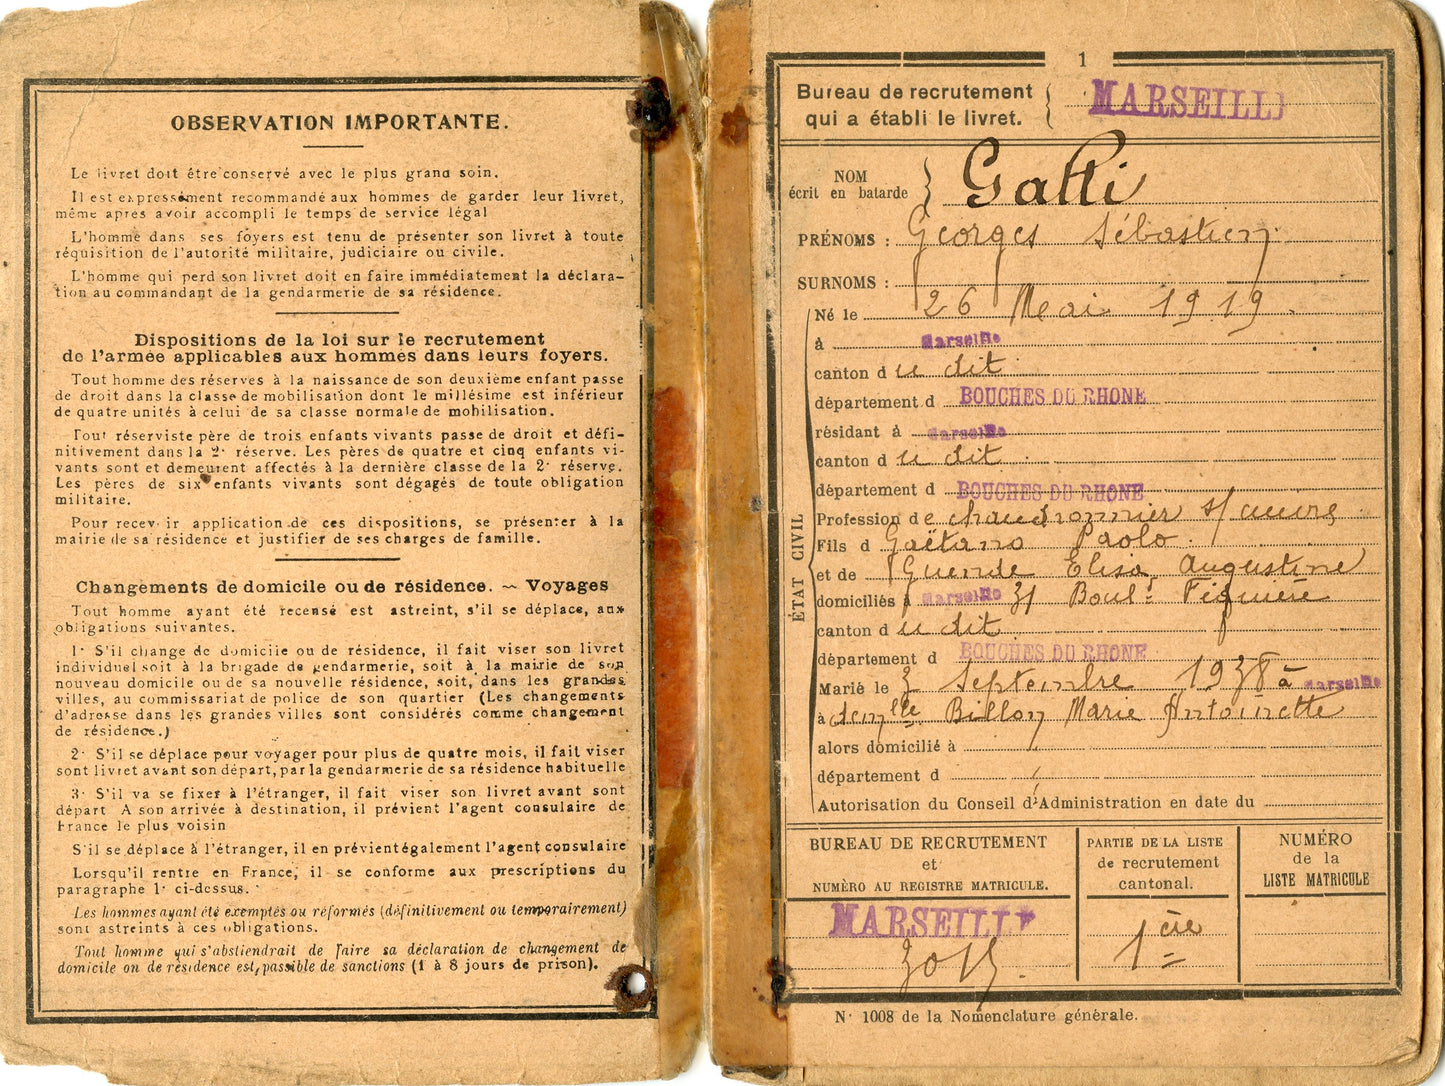 OBSERVATION IMPORTANTE.
Le livret doit être conservé avec le plus grand soin.
Il est expressément recommandé aux hommes de garder leur livret,
même après avoir accompli le temps de service légal
L'homme dans ses foyers est tenu de présenter son livret à toute
réquisition de l'autorité militaire, judiciaire ou civile.
L'homme qui perd son livret doit en faire immédiatement la déclara-
tion au commandant de la gendarmerie de sa résidence.
Dispositions de la loi sur le recrutement
de l'armée applicables aux hommes dans leurs foyers.
Tout homme des réserves à la naissance de son deuxième enfant passe
de droit dans la classe de mobilisation dont le millésime est inférieur
de quatre unités à celui de sa classe normale de mobilisation.
Tout réserviste père de trois enfants vivants passe de droit et défi-
nitivement dans la 2e réserve. Les pères de quatre et cinq enfants vi-
vants sont et demeurent affectés à la dernière classe de la 2e réserve.
Les pères de six enfants vivants sont dégagés de toute obligation
militaire.
Pour recevoir application de ces dispositions, se présenter à la
mairie de sa résidence et justifier de ses charges de famille.
Changements de domicile ou de résidence. ~ Voyages
Tout homme ayant été recensé est astreint, s'il se déplace, aux
obligations suivantes.
1° S'il change de domicile ou de résidence, il fait viser son livret
individuel soit à la brigade de gendarmerie, soit à la mairie de son
nouveau domicile ou de sa nouvelle résidence, soit, dans les grandes
villes, au commissariat de police de son quartier (Les changements
d'adresse dans les grandes villes sont considérés comme changement
de résidence.)
2° S'il se déplace pour voyager pour plus de quatre mois, il fait viser
sont livret avant son départ, par la gendarmerie de sa résidence habituelle
3° S'il va se fixer à l'étranger, il fait viser son livret avant son
départ A son arrivée à destination, il prévient l'agent consulaire de
France le plus voisin
S'il se déplace à l'étranger, il en prévient également l'agent consulaire
Lorsqu'il rentre en France, il se conforme aux prescriptions du
paragraphe 1° ci-dessus.
Les hommes ayant été exemptés ou réformés (définitivement ou temporairement)
sont astreints à ces obligations.
Tout homme qui s'abstiendrait de faire sa déclaration de changement de
domicile ou de résidence est passible de sanctions (1 à 8 jours de prison).
1
Bureau de recrutement
qui a établi le livret. MARSEILLE
NOM
écrit en batarde Gatti
PRÉNOMS : Georges Sébastien
SURNOMS :
Né le 26 Mai 1919.
à Marseille
canton d u dit
département d BOUCHES DU RHONE
résidant à Marseille
canton d u dit
département d BOUCHES DU RHONE
Profession de chaudronnier s/ cuivre
Fils d Gaëtano Paolo.
et de Elisa Augustine
domiciliés à Marseille 31 Boul.d
canton d u dit
département d BOUCHES DU RHONE
Marié le 3 Septembre 1938 à Marseille
à demlle Billon Marie Antoinette
alors domicilié à
département d
Autorisation du Conseil d'Administration en date du
ÉTAT CIVIL
BUREAU DE RECRUTEMENT
et
NUMÉRO AU REGISTRE MATRICULE.
PARTIE DE LA LISTE
de recrutement
cantonal.
NUMÉRO
de la
LISTE MATRICULE
MARSEILLE
1ère
N° 1008 de la Nomenclature générale.